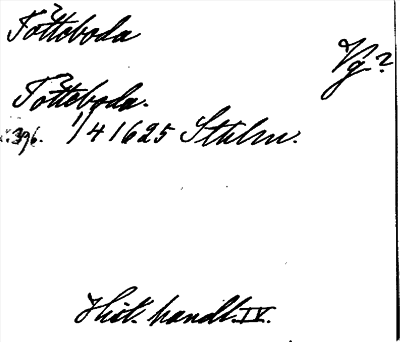 Totteboda
Vg?
Totteboda.
s. 396. 1/4 1625 Sthlm.
Hist. handl. IV.